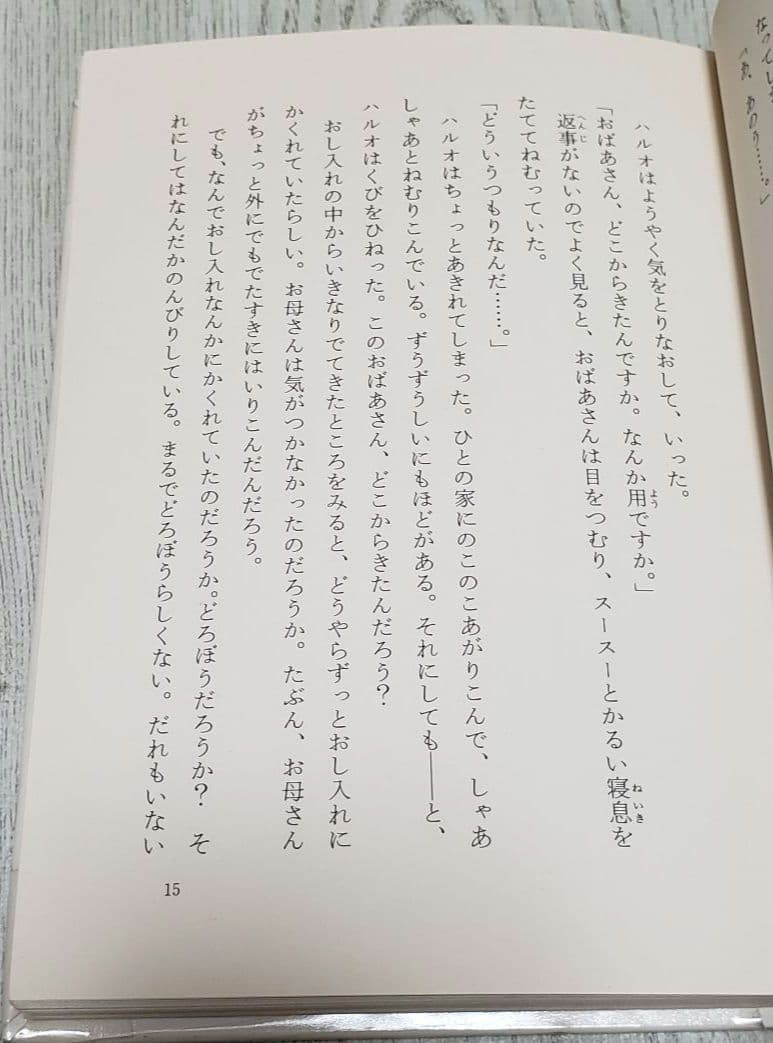 ハルオはようやく気をとりなおして、いった。
「おばあさん、どこからきたんですか。なんか用ですか。」
返事がないのでよく見ると、おばあさんは目をつむり、スースーとかるい寝息を
たててねむっていた。
「どういうつもりなんだ……。」
ハルオはちょっとあきれてしまった。ひとの家にのこのこあがりこんで、しゃあ
しゃあとねむりこんでいる。ずうずうしいにもほどがある。それにしても――と、
ハルオはくびをひねった。このおばあさん、どこからきたんだろう?
おし入れの中からいきなりでてきたところをみると、どうやらずっとおし入れに
かくれていたらしい。お母さんは気がつかなかったのだろうか。たぶん、お母さん
がちょっと外にでもでたすきにはいりこんだんだろう。
でも、なんでおし入れなんかにかくれていたのだろうか。どろぼうだろうか? そ
れにしてはなんだかのんびりしている。まるでどろぼうらしくない。だれもいない
15